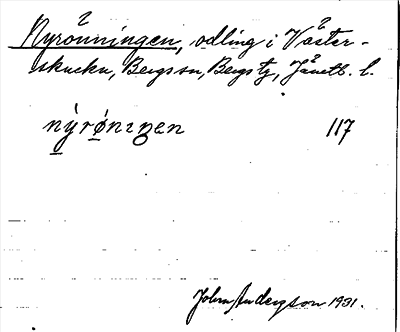 Nyrönningen, odling i Väster-
skucku, Bergs sn, Bergs tg, Jämtl. l.
nýrø̀niŋen 117
John Andersson 1931.